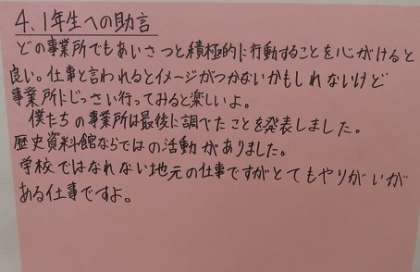 4、1年生への助言
どの事業所でもあいさつと積極的に行動することを心がけると
良い。仕事と言われるとイメージがつかないかもしれないけど
事業所にじっさい行ってみると楽しいよ。
僕たちの事業所は最後に調べたことを発表しました。
歴史資料館ならではの活動がありました。
学校ではなれない地元の仕事ですがとてもやりがいが
ある仕事ですよ。